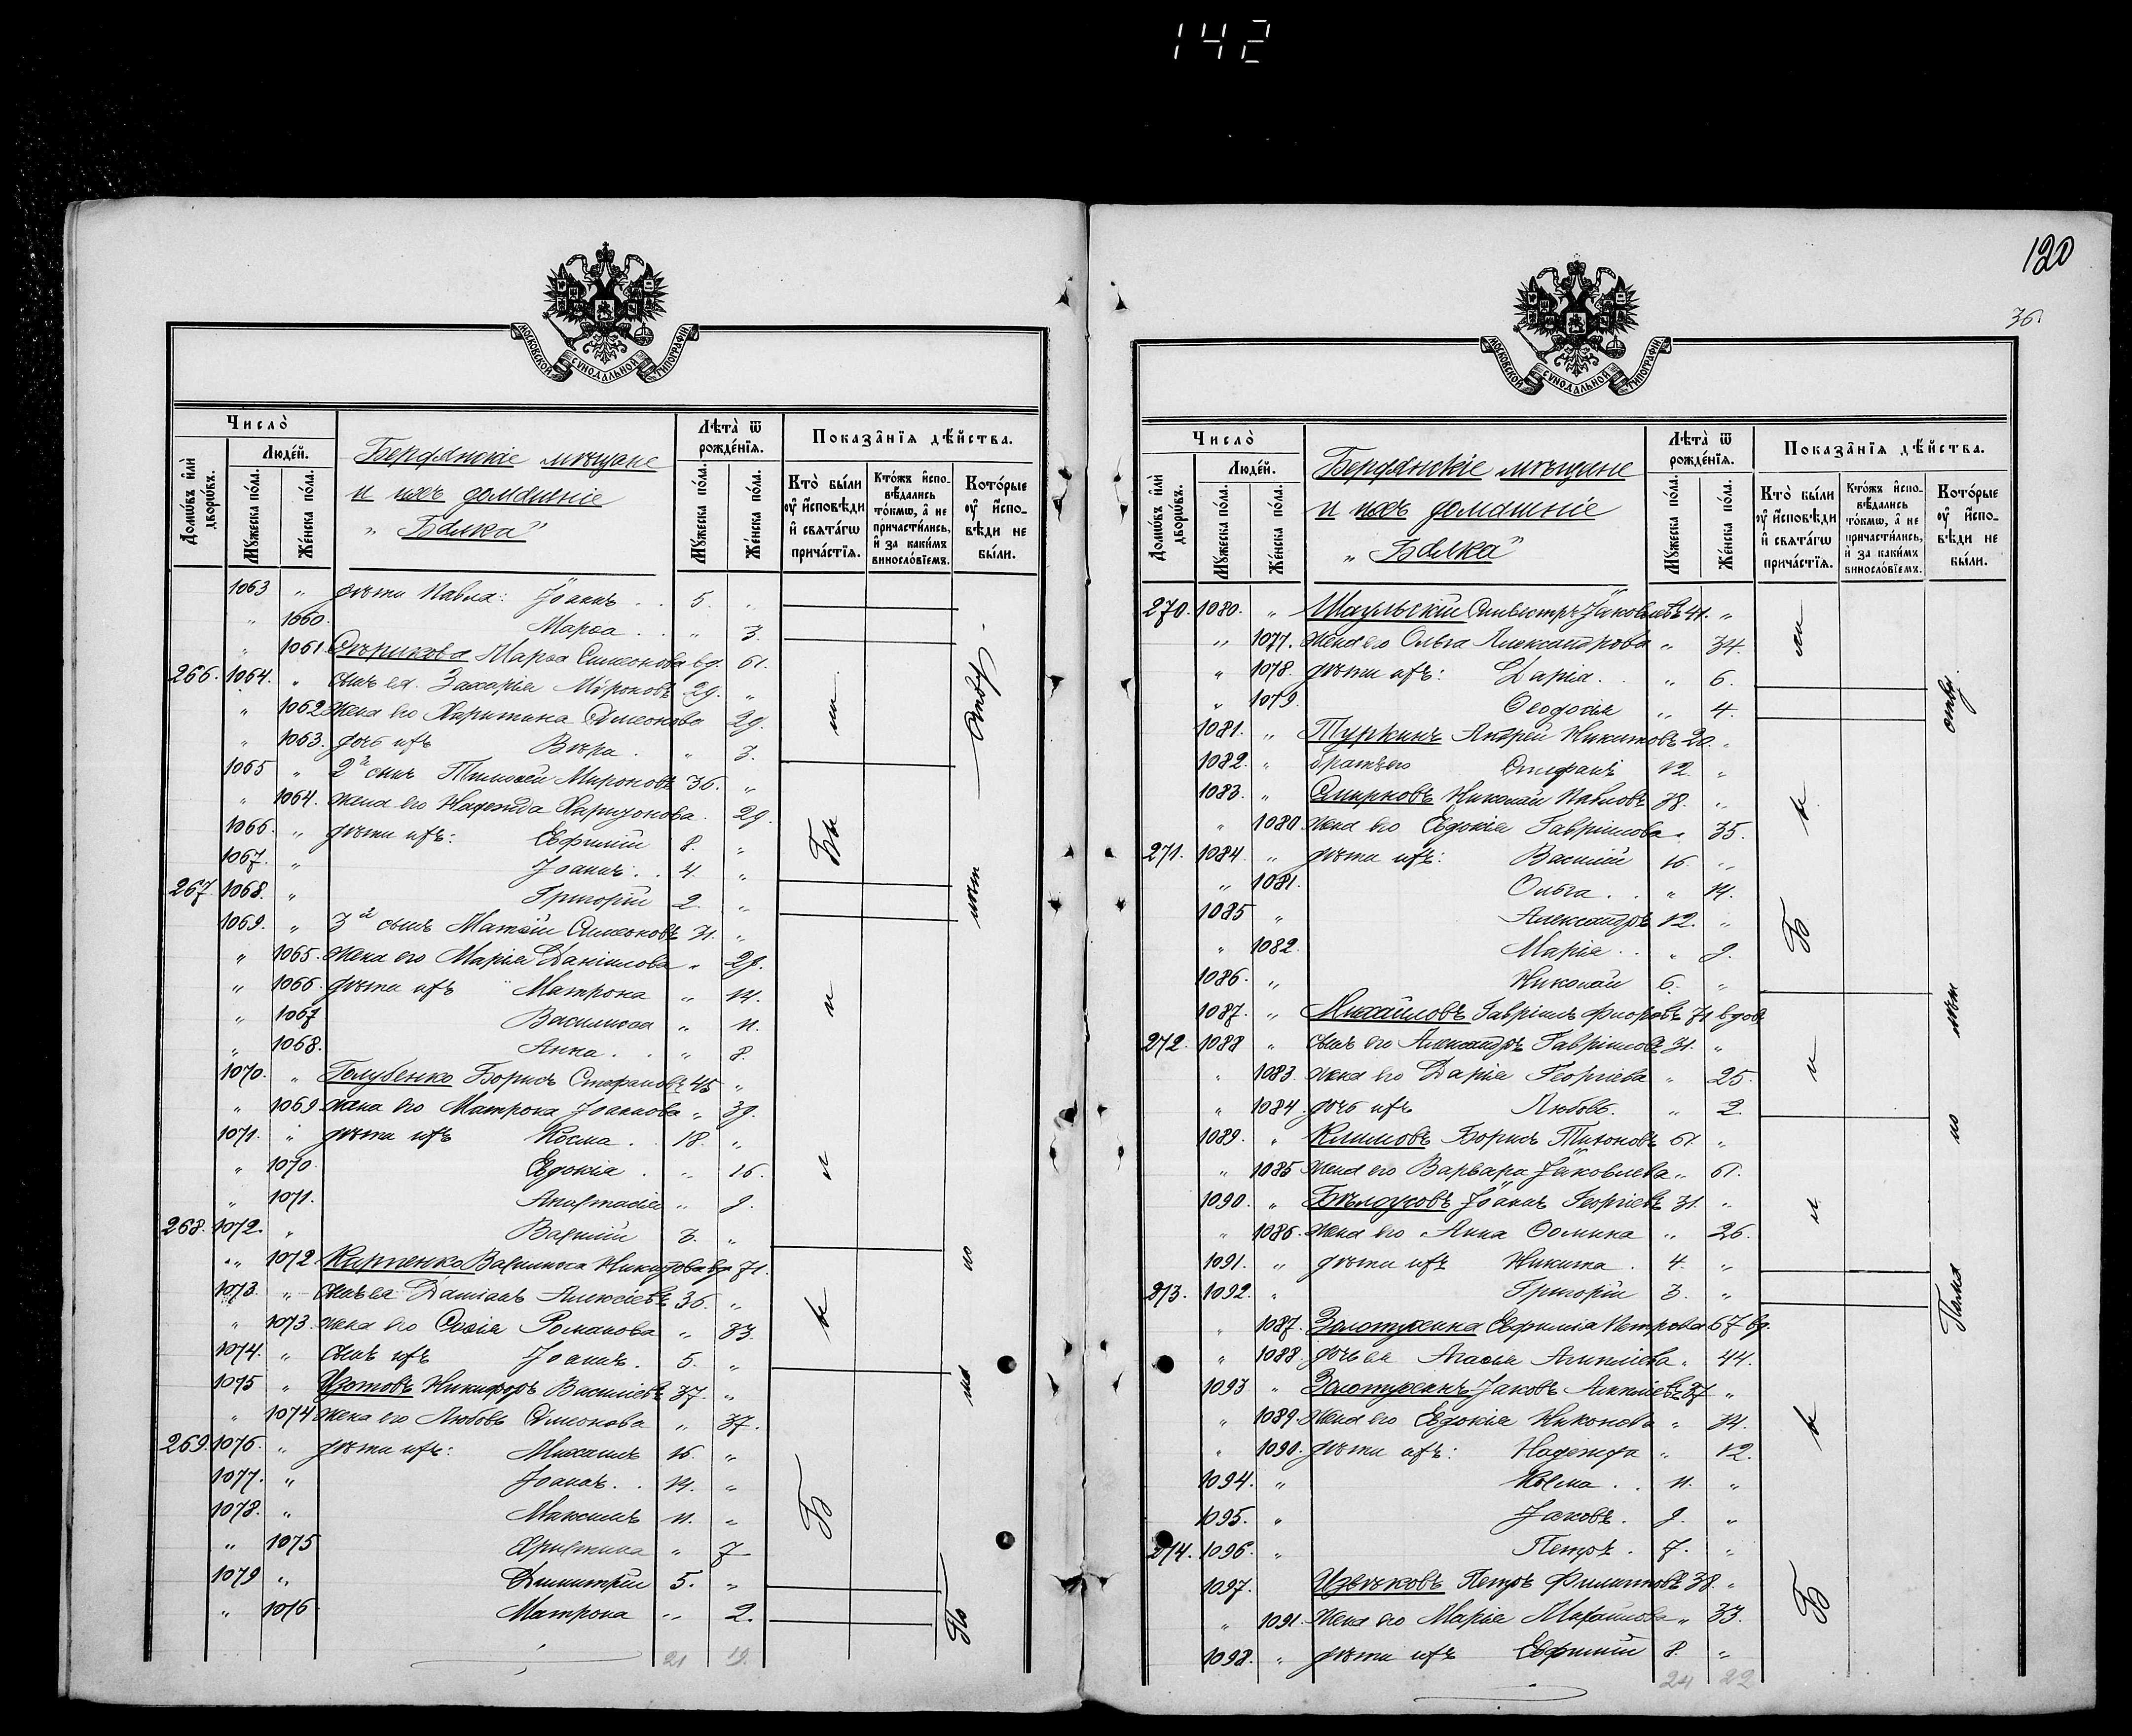 142
МОСКОВСКОЙ СУНОДАЛЬНОЙ ТИПОГРАФІИ
Число̀
Домѡ́въ и҆лѝ дворѡ́въ.
Люде́й.
Мꙋ́жеска по́ла.
Же́нска по́ла.
Бердянскіе мѣщане
и ихъ домашніе
„Балка"
Лѣта̀ ѿ рожде́нїѧ.
Мꙋ́жеска по́ла.
Же́нска по́ла.
Показа̑нїѧ дѣ́йства.
Кто̀ бы́ли ᲂу҆ и҆сповѣ́ди и҆ свѧта́гѡ прича́стїѧ.
Кто́жъ и҆сповѣ́дались то́кмѡ, а҆ не причасти́лись, и҆ за каки́мъ винослові́емъ.
Кото́рые ᲂу҆ и҆сповѣ́ди не бы́ли.
1063 „ дѣти Павла: Іоаннъ . . 5. „
„ 1060. Марѳа . . „ 3.
„ 1061 Марѳа Симеонова вд. 61.
266. 1064. „ сынъ ея Захарія Мѵроновъ 29. „
„ 1062 жена его Харитина Симеонова 29.
„ 1063. дочь ихъ Вѣра . „ 3.
1065 „ 2й сынъ Тимоѳей Мироновъ 36. „
„ 1064. жена его Надежда Харитонова . 29.
1066. „ дѣти ихъ: Евфимій 8. „
1067. „ Іоаннъ . . 4. „
267. 1068. „ Григорій 2. „
1069. „ 3й сынъ Матѳей Симеоновъ 31. „
„ 1065. жена его Марія Даніилова „ 29.
„ 1066. дѣти ихъ Матрона „ 14.
„ 1067 Василисса „ 11.
„ 1068. Анна . . „ 8.
1070. „ Голубенко Борисъ Стефановъ 45 „
„ 1069 жена его Матрона Іоаннова „ 39.
1071. „ дѣти ихъ Косма . 18. „
„ 1070. Евдокія . „ 16.
„ 1071. Анастасія „ 9.
268. 1072. „ Василій 3. „
„ 1072. Карпенко Василисса вд 71.
1073. „ сынъ ея Даміанъ Алексіевъ 36. „
„ 1073. жена его Софія Романова „ 33.
1074. „ сынъ ихъ Іоаннъ . 5. „
1075 „ Изотовъ Никифоръ Василіевъ 37. „
„ 1074 жена его Любовь Симеонова „ 37.
269. 1076. „ дѣти ихъ: Михаилъ 16. „
1077. „ Іоаннъ . . 14. „
1078. „ Максимъ 11. „
„ 1075 Христина „ 7
1079 „ Димитрій 5. „
„ 1076 Матрона „ 2.
21 19.
120
36.
МОСКОВСКОЙ СУНОДАЛЬНОЙ ТИПОГРАФІИ
Число̀
Домѡ́въ и҆лѝ дворѡ́въ.
Люде́й.
Мꙋ́жеска по́ла.
Же́нска по́ла.
Бердянскіе мѣщане
и ихъ домашніе
„Балка"
Лѣта̀ ѿ рожде́нїѧ.
Мꙋ́жеска по́ла.
Же́нска по́ла.
Показа̑нїѧ дѣ́йства.
Кто̀ бы́ли ᲂу҆ и҆сповѣ́ди и҆ свѧта́гѡ прича́стїѧ.
Кто́жъ и҆сповѣ́дались то́кмѡ, а҆ не причасти́лись, и҆ за каки́мъ винослові́емъ.
Кото́рые ᲂу҆ и҆сповѣ́ди не бы́ли.
270. 1080. „ Сильвестръ Іаковлевъ 41. „
„ 1077. жена его Ольга Александрова „ 34.
„ 1078. дѣти ихъ: Дарія. . „ 6.
„ 1079. Ѳеодосія „ 4.
1081. „ Туркинъ Андрей Никитовъ 20. „
1082. „ братъ его Стефанъ 12. „
1083. „ Смирновъ Николай Павловъ 38. „
„ 1080 жена его Евдокія Гавріилова „ 35.
271. 1084. „ дѣти ихъ: Василій 16. „
„ 1081. Ольга . . „ 14.
1085 „ Александръ 12. „
„ 1082. Марія . . „ 9.
1086. „ Николай 6. „
1087. „ Михайловъ Гавріилъ Флоровъ 71 вдов
272. 1088 „ сынъ его Александръ Гавріиловъ 31. „
„ 1083. жена его Дарія Георгіева „ 25.
„ 1084. дочь ихъ Любовь. „ 2.
1089. „ Климовъ Борисъ Тихоновъ 61 „
„ 1085 жена его Варвара Іаковлева „ 61.
1090. „ Бѣлоусовъ Іоаннъ Георгіевъ 31. „
„ 1086. жена его Анна Ѳомина „ 26.
1091. „ дѣти ихъ Никита . 4. „
273. 1092. „ Григорій 3. „
„ 1087. Золотухина Евфимія Петрова 67 вд.
„ 1088. дочь ея Агаѳія „ 44.
1093 „ Золотухинъ Іаковъ 37 „
„ 1089. жена его Евдокія Никонова „ 34.
„ 1090. дѣти ихъ: Надежда „ 12.
1094. „ Косма . . 11. „
1095. „ Іаковъ . 9. „
274. 1096. „ Петръ . 7. „
1097. Извѣковъ Петръ Филипповъ 38. „
„ 1091. жена его Марія Михайлова „ 33.
1098. „ дѣти ихъ Евфимій 8. „
24 22